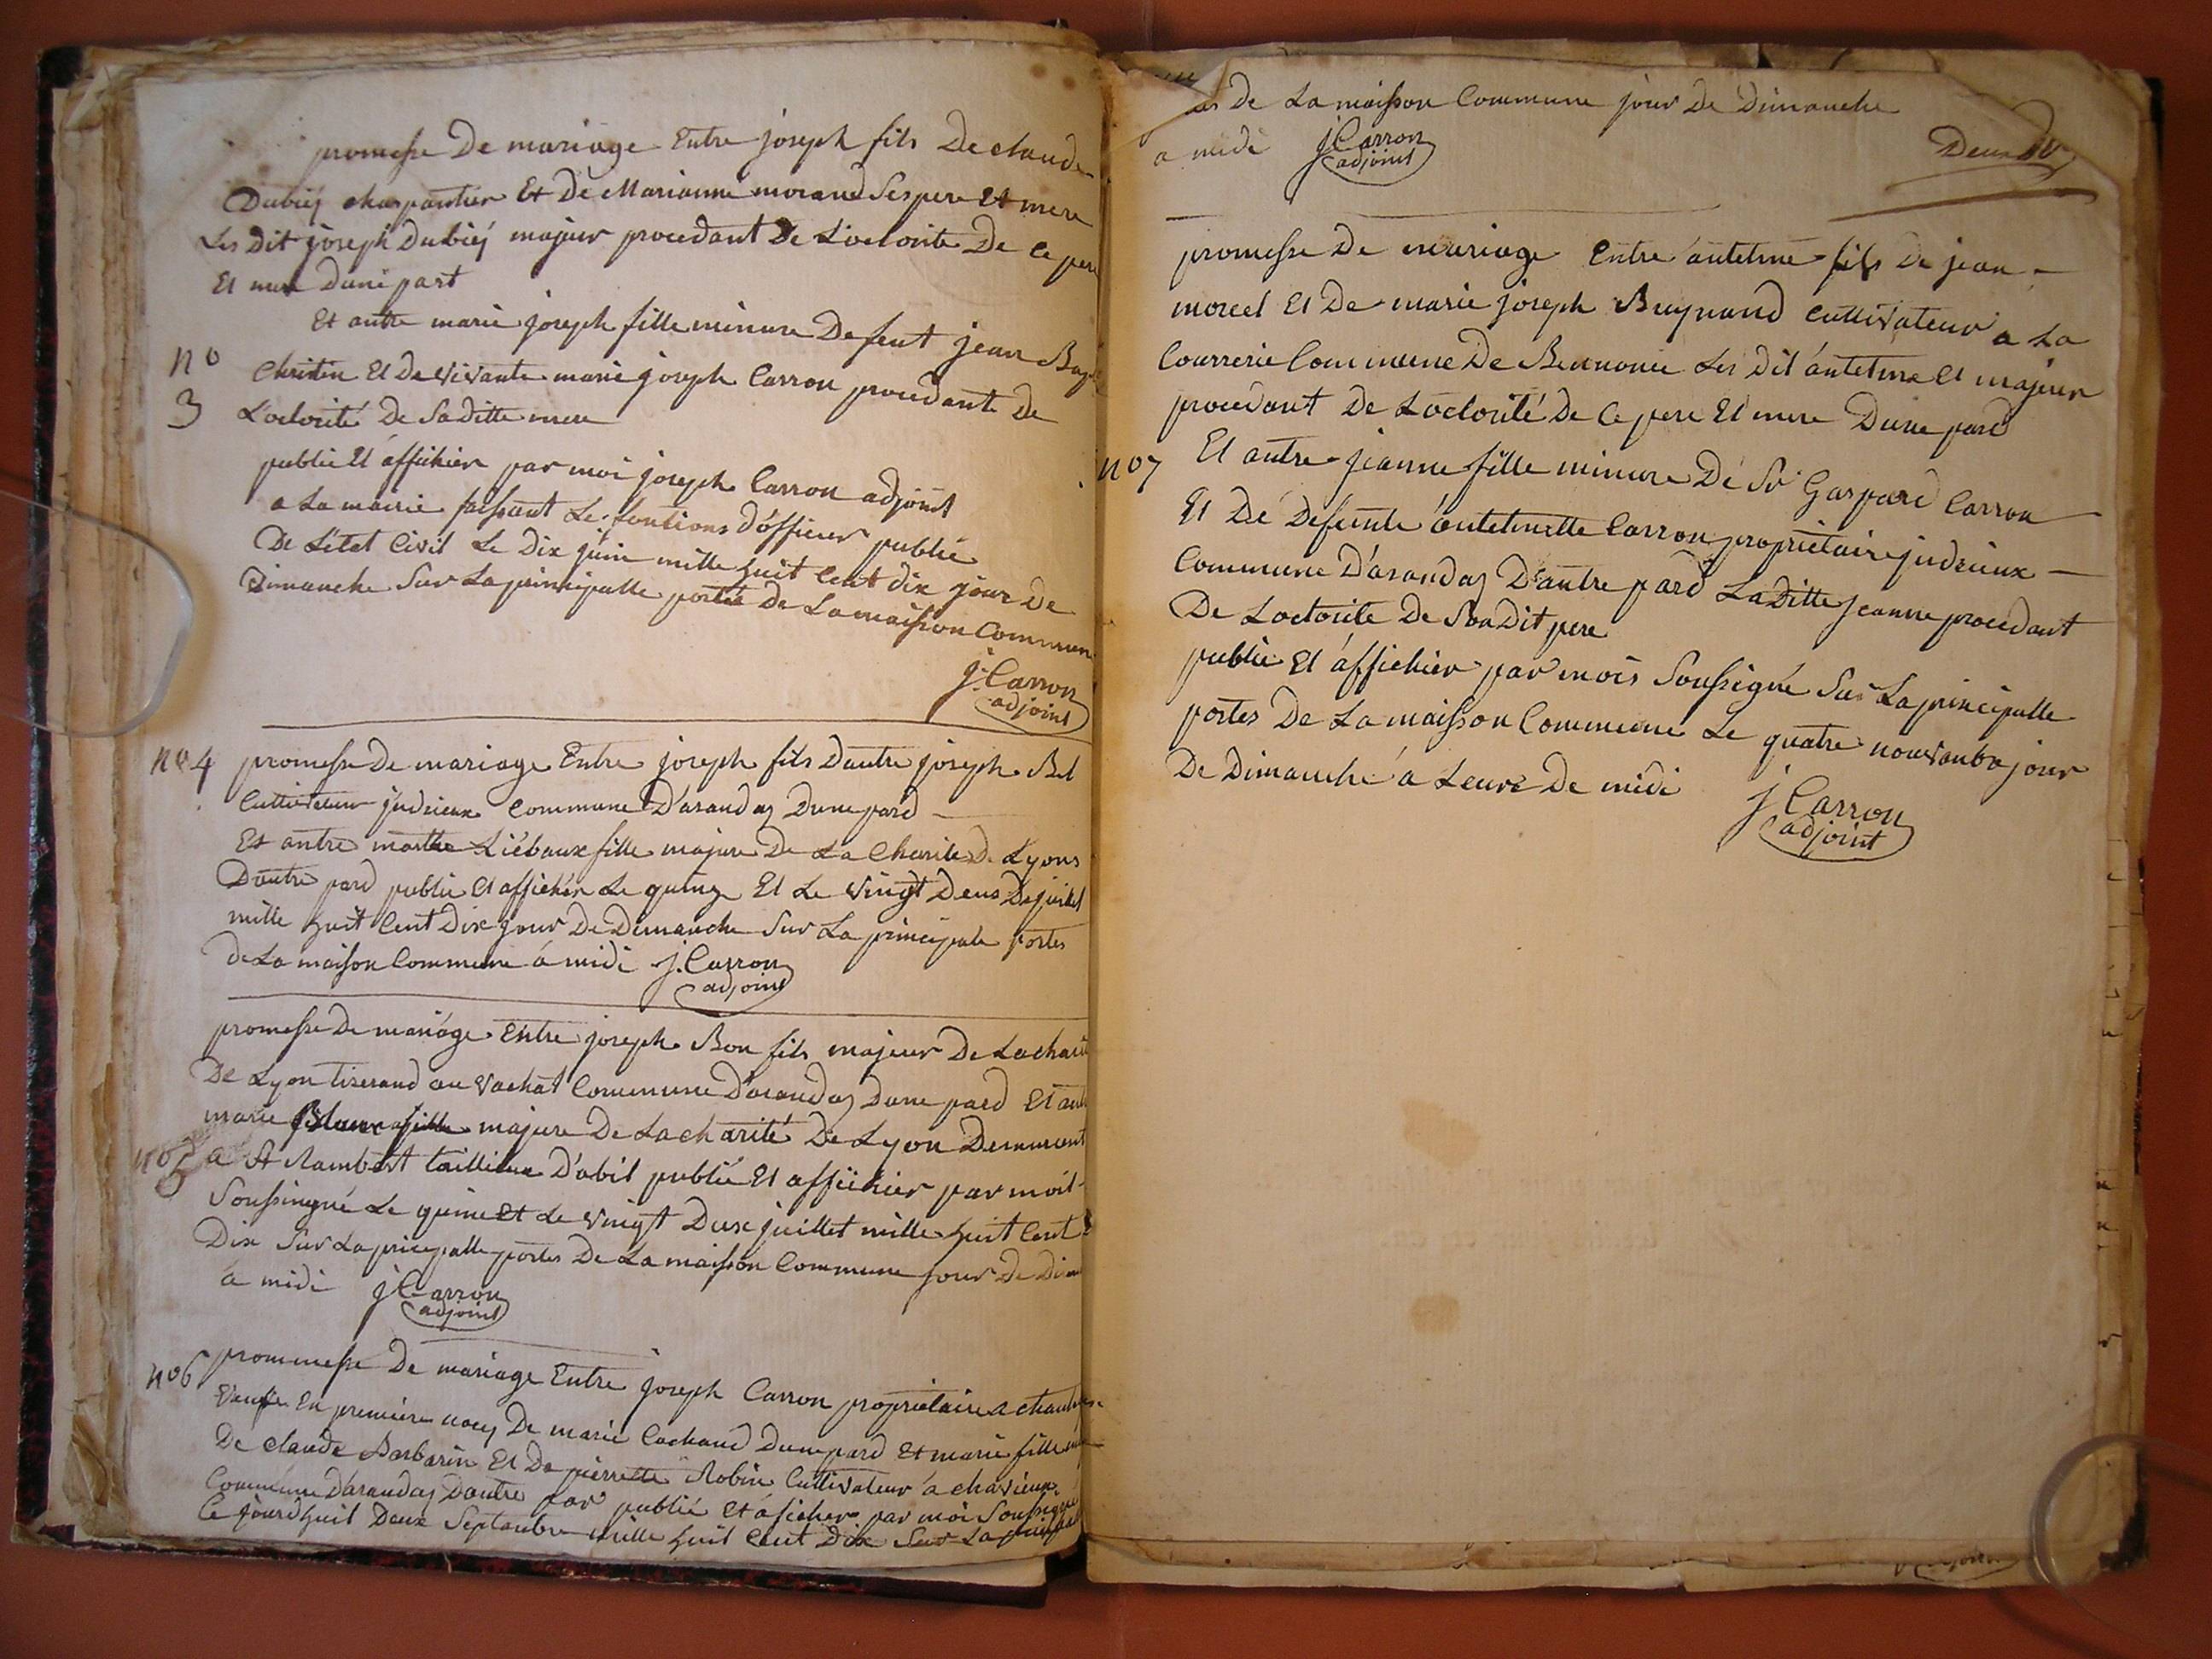 promesse De mariage Entre joseph fils De claude
Dubiéj charpantier Et De Marianne morand Ses pere Et mere
Les Dit joseph Dubiéj majeur procedant De L'octorité De Ce pere
Et mere Dune part
Et autre marie joseph fille mineure De feut jean Bap
no Christin Et De vivante marie joseph Carron procedante De
3 L'octorité De Sa Ditte mere
publié Et affichier par moi joseph Carron adjoint
a La mairie faissant Le fontions d'officier publié
De L'état Civil Le Dix juin mille huit Cent dix jour De
Dimanche Sur La principalle portes De La maison Commun
j. Carron
adjoint
no 4 promesse De mariage Entre joseph fils Dautre joseph Bel
Cultivateur judrieux Commune D'arandaz Dune pard
Et autre marthe Liébaux fille majure De La Charité De Lyons
Dautre pard publié Et affichér Le quinz Et Le vingt Deus De juillet
mille huit Cent Dix jour De Dimanche Sur La principale portes
de La maison Commune à midi j. Carron
adjoint
promesse De mariage Entre joseph Bon fils majeur De La charité
De Lyon tiserand au vachat Commune D'arandaz Dune pard Et autre
marie fille majure De La charité De Lyon Demurent
no 5 a St Rambert D'abit publié Et affichier par moi
Soussingné Le quinz Et Le vingt Dux juillet mille huit Cent
Dix Sur La pricipalle portes De La maison Commune jour De Dim
à midi j Carron
adjoint
no 6 prommesse De mariage Entre joseph Carron propriétaire a
Veuf En premiere nocej De marie Cochand Dune pard Et marie fille
De Claude Barbarin Et De pierrette Robin Cultivateur à chavieux
Commune D'arandaz Dautre par publié Et aficher par moi Soussigné
Ce jourdhuit Deux Septanbre mille huit Cent Dix Sur La principal
De La maison Commune jour De Dimanche
a midi j Carron
adjoint
promesse De mariage Entre antelme fils De jean
morcel Et De marie joseph Bugnand Cultivateur a La
Courrerie Commune De Bennonce Les Dit antelme Et majeur
procedant De L'octorité De Ce pere Et mere Dune pard
no 7 Et autre jeanne fille mineure De Sr Gaspard Carron
Et De Defunte antelmette Carron propriétaire judrieux
Commune D'arandaz D'autre pard La Ditte jeanne procedant
De L'octorite De Son Dit pere
publié Et affichier par mois Soussigné Sur La principalle
portes De La maisson Commune Le quatre nouvanbre jour
De Dimanche à Leure De midi j Carron
adjoint